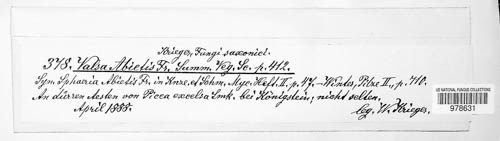 Krieger, Fungi saxonici.
378. Valsa Abietis Fr. Summ. Veg. Sc. p. 412.
Syn. Sphaeria Abietis Fr. in Knze. et Schm. Myc. Heft. II. p. 47. – Winter, Pilze II., p. 710.
An dürren Aesten von Picea excelsa Lmk. bei Königstein; nicht selten.
April 1885. leg. W. Krieger.
US NATIONAL FUNGUS COLLECTIONS
978631